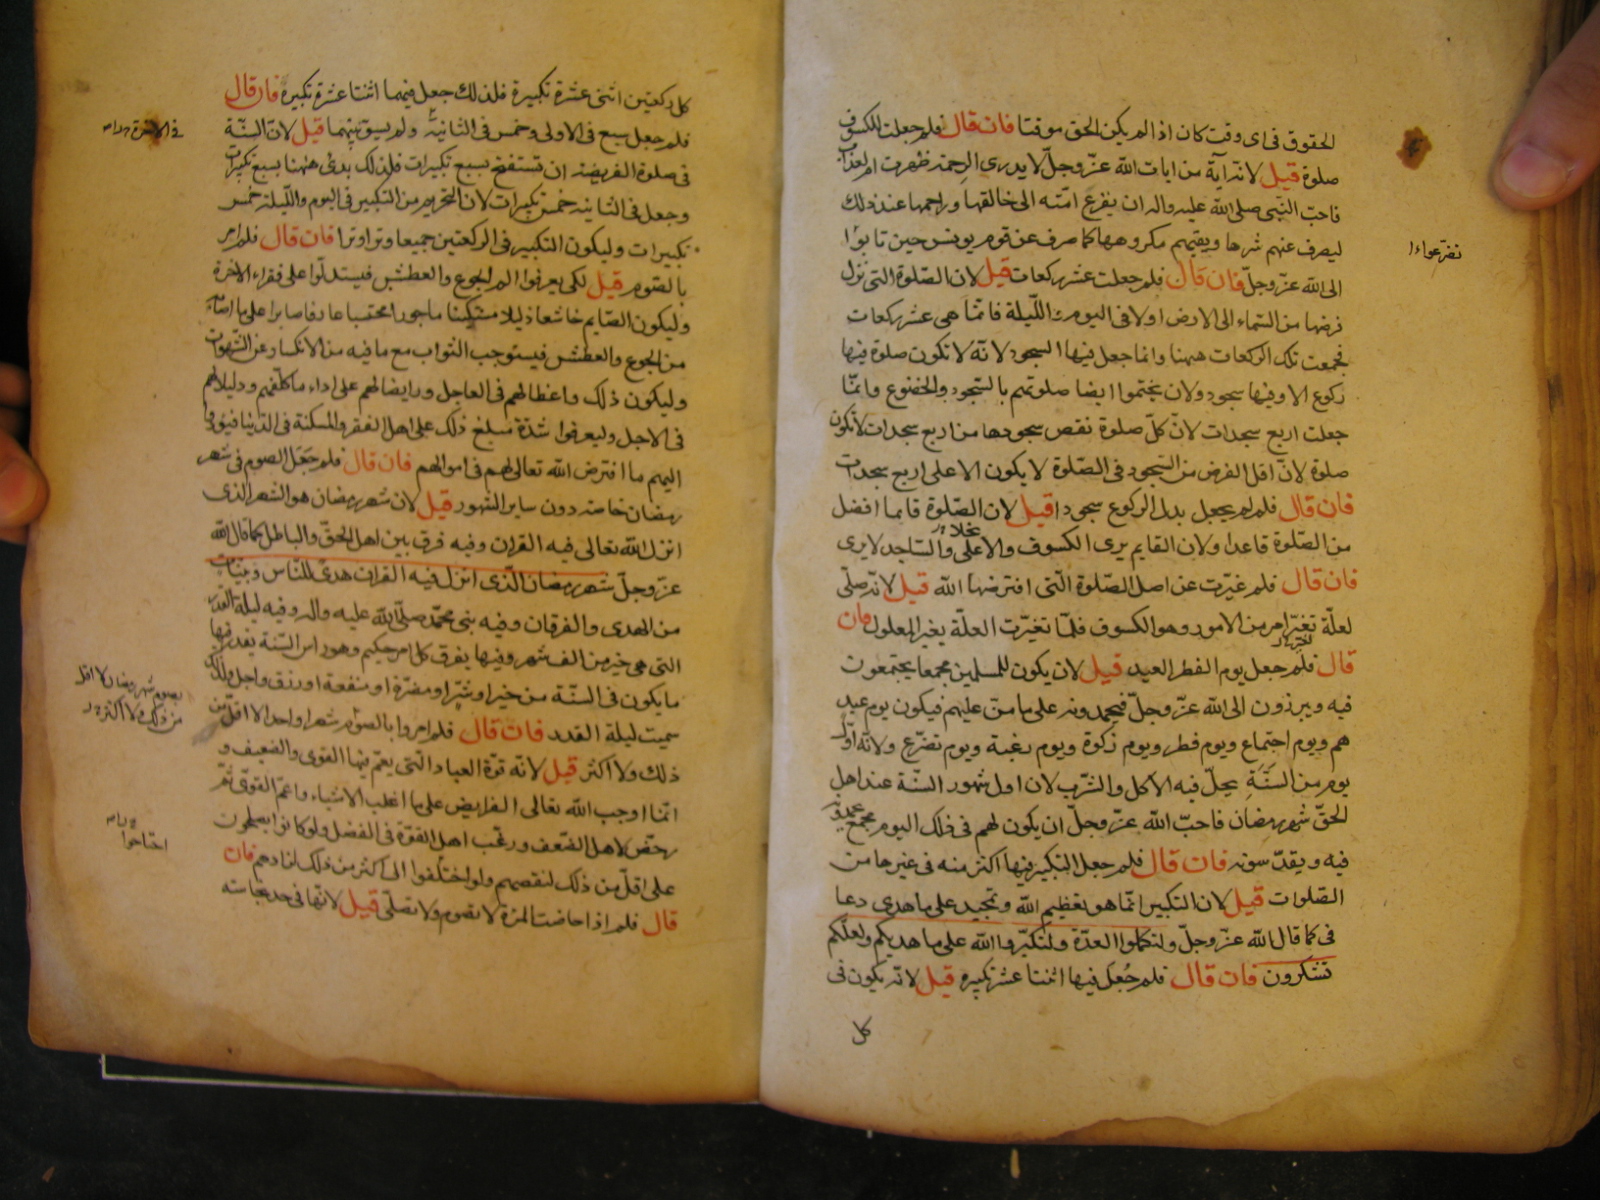 الحقوق فى اى وقت كان اذا لم يكن الحق موقتا فان قال فلم جعلت للكسوف
صلوة قيل لانه آية من ايات الله عزّ وجلّ لا يدرى الرحمة ظهرت ام لعذاب
فاحبّ النبى صلى الله عليه واله ان يفزع امّته الى خالقها وراحمها عند ذلك
ليصرف عنهم شرها ويقيهم مكروهها كما صرف عن قوم يونس حين تابوا
تضرعوا
الى الله عزّ وجلّ فان قال فلم جعلت عشر ركعات قيل لان الصّلوة التى نزل
فرضها من السّماء الى الارض اولا فى اليوم والليلة فانما هى عشر ركعات
فجمعت تلك الركعات ههنا وانما جعل فيها السجود لانه لا تكون صلوة فيها
ركوع الا وفيها سجود ولان يختموا ايضا صلوتهم بالسّجود والخضوع وانما
جعلت اربع سجدات لانّ كلّ صلوة نقص سجودها من اربع سجدات لا تكون
صلوة لانّ اقل الفرض من السّجود فى الصّلوة لا يكون الا على اربع سجدات
فان قال فلم لم يجعل بدل الركوع سجودا قيل لان الصّلوة قايما افضل
من الصّلوة قاعدا ولان القايم يرى الكسوف والاعلى والسّاجد لا يرى
فان قال فلم غيّرت عن اصل الصّلوة التى افترضها الله قيل لانه صلّى
لعلّة تغيّر امر من الامور وهو الكسوف فلمّا تغيّرت العلّة تغير المعلول فان
قال فلم جعل يوم الفطر العيد قيل لان يكون للمسلمين مجمعا يجتمعون
فيه ويبرزون الى الله عزّ وجلّ فيحمدونه على ما منّ عليهم فيكون يوم عيد
هم ويوم اجتماع ويوم فطر ويوم زكوة ويوم رغبة ويوم تضرّع ولانه اوّل
يوم من السّنة يحلّ فيه الاكل والشّرب لان اول شهور السّنة عند اهل
الحقّ شهر رمضان فاحبّ الله عزّ وجلّ ان يكون لهم فى ذلك اليوم مجمع يحمدونه
فيه ويقدّسونه فان قال فلم جعل التكبير فيها اكثر منه فى غيرها من
الصّلوات قيل لان التكبير انّما هو تعظيم الله وتمجيد على ما هدى دعا
فى كما قال الله عزّ وجلّ ولتكملوا العدّة ولتكبّروا الله على ما هديكم ولعلّكم
تشكرون فان قال فلم جُعل فيها اثنتا عشر تكبيرة قيل لانّه يكون فى
كل
كل ركعتين اثنى عشرة تكبيرة فلذلك جعل فيهما اثنتا عشرة تكبيرة فان قال
فلم جعل سبع فى الاولى وخمس فى الثانية ولم يسوّ بينهما قيل لانّ السنّة
فى صلوة الفريضة ان تستفتح بسبع تكبيرات فلذلك بدئ ههنا بسبع تكبيرات
وجعل فى الثانية خمس تكبيرات لان التحريم من التكبير فى اليوم واللّيلة خمس
تكبيرات وليكون التكبير فى الركعتين جميعا وترا وترا فان قال فلم امر
بالصّوم قيل لكى يعرفوا الم الجوع والعطش فيستدلّوا على فقراء الاخرة
وليكون الصّايم خاشعا ذليلا مستكينا ماجورا محتسبا عارفا صابرا على ما اصابه
من الجوع والعطش فيستوجب الثواب مع ما فيه من الانكسار عن الشهوات
وليكون ذلك واعظا لهم فى العاجل ورايضا لهم على اداء ما كلّفهم ودليلا لهم
فى الاجل وليعرفوا شدّة مبلغ ذلك على اهل الفقر والمسكنة فى الدّنيا فيؤدوا
اليهم ما افترض الله تعالى لهم فى اموالهم فان قال فلم جَعَل الصوم فى شهر
رمضان خاصة دون ساير الشهور قيل لان شهر رمضان هو الشهر الذى
انزل الله تعالى فيه القران وفيه فرق بين اهل الحقّ والباطل كما قال الله
عزّ وجلّ شهر رمضان الّذى انزل فيه القران هدى للنّاس وبيّنات
من الهدى والفرقان وفيه نبى محمّد صلّى الله عليه واله وفيه ليلة القدر
التى هى خير من الف شهر وفيها يفرق كل امر حكيم وهو راس السّنة يقدر فيها
ما يكون فى السّنة من خير او شرّ او مضرّة او منفعة او رزق واجل ولذلك
سميت ليلة القدر فان قال فلم امروا بالصّوم شهرا واحدا لا اقلّ من
ذلك ولا اكثر قيل لانّه قوّة العباد الّتى يعمّ فيها القوى والضعيف و
انّما اوجب الله تعالى الفرايض على اغلب الاشياء واعمّ القوى ثمّ
رخّص لاهل الضّعف ورغّب اهل القوّة فى الفضل ولو كانوا يصلحون
على اقلّ من ذلك لنقصهم ولو احتاجوا الى اكثر من ذلك لزادهم فان
قال فلم اذا حاضت المرأة لا تصوم ولا تصلّى قيل لانّها فى حد نجاسة
بصوم شهر رمضان لا اقل
من ذلك ولا اكثر
احتاجوا